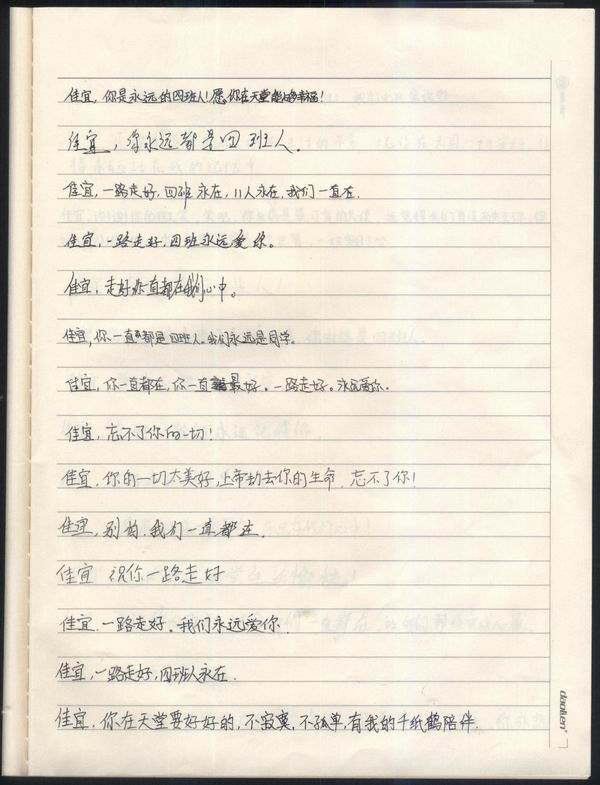 佳宜，你是永远的四班人！愿你在天堂能够幸福！
佳宜，你永远都是四班人．
佳宜，一路走好，四班永在，11人永在，我们一直在．
佳宜，一路走好，四班永远爱你。
佳宜，走好你一直都在我们心中。
佳宜，你一直都是四班人。我们永远是同学。
佳宜，你一直都在，你一直最好。一路走好。永远爱你．
佳宜，忘不了你的一切！
佳宜，你的一切太美好，上帝劫去你的生命，忘不了你！
佳宜，别怕，我们一直都在．
佳宜 祝你一路走好
佳宜．一路走好。我们永远爱你．
佳宜，一路走好，四班人永在．
佳宜，你在天堂要好好的，不寂寞，不孤单，有我的千纸鹤陪伴．